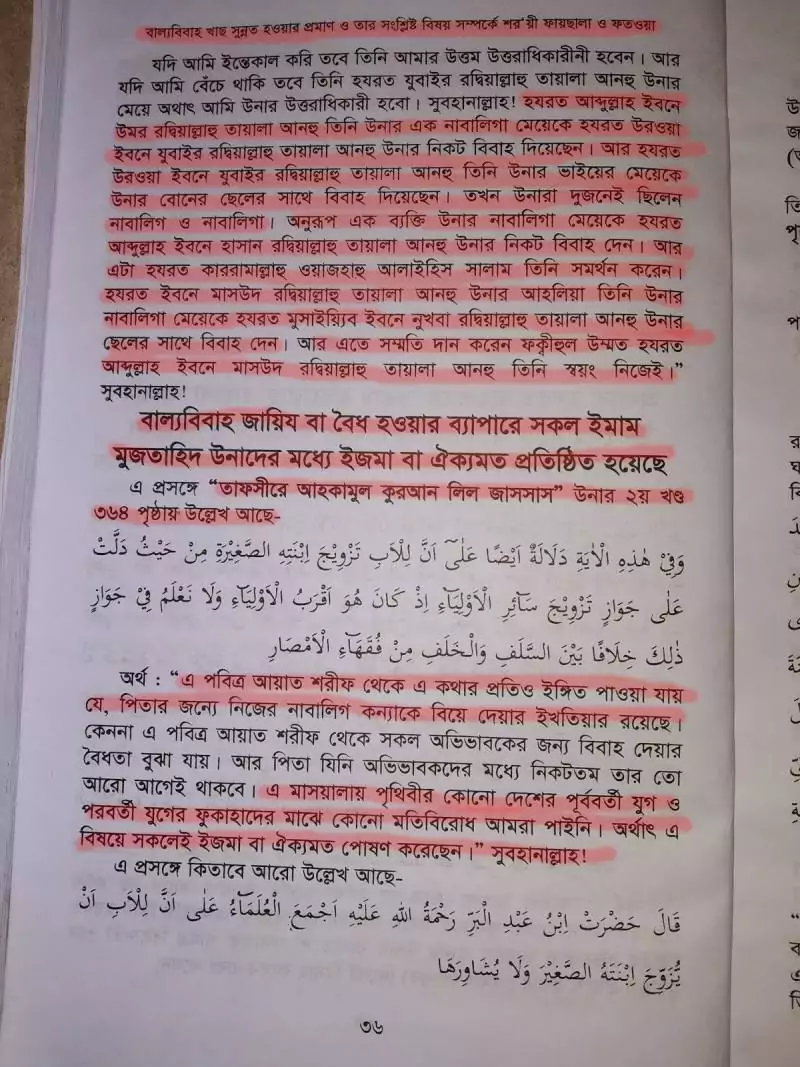 বাল্যবিবাহ খাছ সুন্নত হওয়ার প্রমাণ ও তার সংশ্লিষ্ট বিষয় সম্পর্কে শর'য়ী ফায়ছালা ও ফতওয়া
যদি আমি ইন্তেকাল করি তবে তিনি আমার উত্তম উত্তরাধিকারীনী হবেন। আর
যদি আমি বেঁচে থাকি তবে তিনি হযরত যুবাইর রদ্বিয়াল্লাহু তায়ালা আনহু উনার
মেয়ে অর্থাৎ আমি উনার উত্তরাধিকারী হবো। সুবহানাল্লাহ! হযরত আব্দুল্লাহ ইবনে
উমর রদ্বিয়াল্লাহু তায়ালা আনহু তিনি উনার এক নাবালিগা মেয়েকে হযরত উরওয়া
ইবনে যুবাইর রদ্বিয়াল্লাহু তায়ালা আনহু উনার নিকট বিবাহ দিয়েছেন। আর হযরত
উরওয়া ইবনে যুবাইর রদ্বিয়াল্লাহু তায়ালা আনহু তিনি উনার ভাইয়ের মেয়েকে
উনার বোনের ছেলের সাথে বিবাহ দিয়েছেন। তখন উনারা দুজনেই ছিলেন
নাবালিগ ও নাবালিগা। অনুরূপ এক ব্যক্তি উনার নাবালিগা মেয়েকে হযরত
আব্দুল্লাহ ইবনে হাসান রদ্বিয়াল্লাহু তায়ালা আনহু উনার নিকট বিবাহ দেন। আর
এটা হযরত কাররামাল্লাহু ওয়াজহাহু আলাইহিস সালাম তিনি সমর্থন করেন।
হযরত ইবনে মাসউদ রদ্বিয়াল্লাহু তায়ালা আনহু উনার আহলিয়া তিনি উনার
নাবালিগা মেয়েকে হযরত মুসাইয়্যিব ইবনে নুখবা রদ্বিয়াল্লাহু তায়ালা আনহু উনার
ছেলের সাথে বিবাহ দেন। আর এতে সম্মতি দান করেন ফক্বীহুল উম্মত হযরত
আব্দুল্লাহ ইবনে মাসউদ রদ্বিয়াল্লাহু তায়ালা আনহু তিনি স্বয়ং নিজেই।”
সুবহানাল্লাহ!
বাল্যবিবাহ জায়িয বা বৈধ হওয়ার ব্যাপারে সকল ইমাম
মুজতাহিদ উনাদের মধ্যে ইজমা বা ঐক্যমত প্রতিষ্ঠিত হয়েছে
এ প্রসঙ্গে “তাফসীরে আহকামুল কুরআন লিল জাসসাস” উনার ২য় খণ্ড
৩৬৪ পৃষ্ঠায় উল্লেখ আছে-
وَفِيْ هٰذِهِ الْاٰيَةِ دَلَالَةٌ اَيْضًا عَلٰىٓ اَنَّ لِلْاَبِ تَزْوِيْجَ اِبْنَتِهِ الصَّغِيْرَةِ مِنْ حَيْثُ دَلَّتْ
عَلٰى جَوَازِ تَزْوِيْجَ سَآئِرِ الْاَوْلِيَآءِ اِذْ كَانَ هُوَ اَقْرَبُ الْاَوْلِيَآءِ وَلَا نَعْلَمُ فِيْ جَوَازِ
ذٰلِكَ خِلَافًا بَيْنَ السَّلَفِ وَالْخَلَفِ مِنْ فُقَهَآءِ الْاَمْصَارِ
অর্থ : “এ পবিত্র আয়াত শরীফ থেকে এ কথার প্রতিও ইঙ্গিত পাওয়া যায়
যে, পিতার জন্যে নিজের নাবালিগ কন্যাকে বিয়ে দেয়ার ইখতিয়ার রয়েছে।
কেননা এ পবিত্র আয়াত শরীফ থেকে সকল অভিভাবকের জন্য বিবাহ দেয়ার
বৈধতা বুঝা যায়। আর পিতা যিনি অভিভাবকদের মধ্যে নিকটতম তার তো
আরো আগেই থাকবে। এ মাসয়ালায় পৃথিবীর কোনো দেশের পূর্ববর্তী যুগ ও
পরবর্তী যুগের ফুকাহাদের মাঝে কোনো মতবিরোধ আমরা পাইনি। অর্থাৎ এ
বিষয়ে সকলেই ইজমা বা ঐক্যমত পোষণ করেছেন।” সুবহানাল্লাহ!
এ প্রসঙ্গে কিতাবে আরো উল্লেখ আছে-
قَالَ حَضْرَتْ اِبْنُ عَبْدِ الْبَرِّ رَحْمَةُ اللهِ عَلَيْهِ اَجْمَعَ الْعُلَمَآءُ عَلٰى اَنَّ لِلْاَبِ اَنْ
يُّزَوِّجَ اِبْنَتَهُ الصَّغِيْرَ وَلَا يُشَاوِرَهَا
৩৬